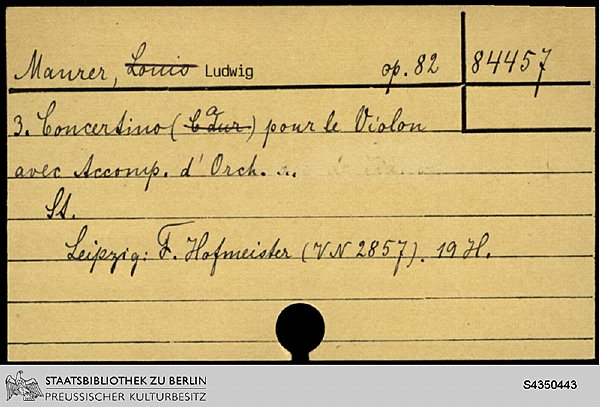 Maurer, Louis Ludwig op. 82 84457
3. Concertino (C dur) pour le Violon
a
avec Accomp. d'Orch.
St.
Leipzig: F. Hofmeister (VN 2857). 19 H.
STAATSBIBLIOTHEK ZU BERLIN
PREUSSISCHER KULTURBESITZ
S4350443